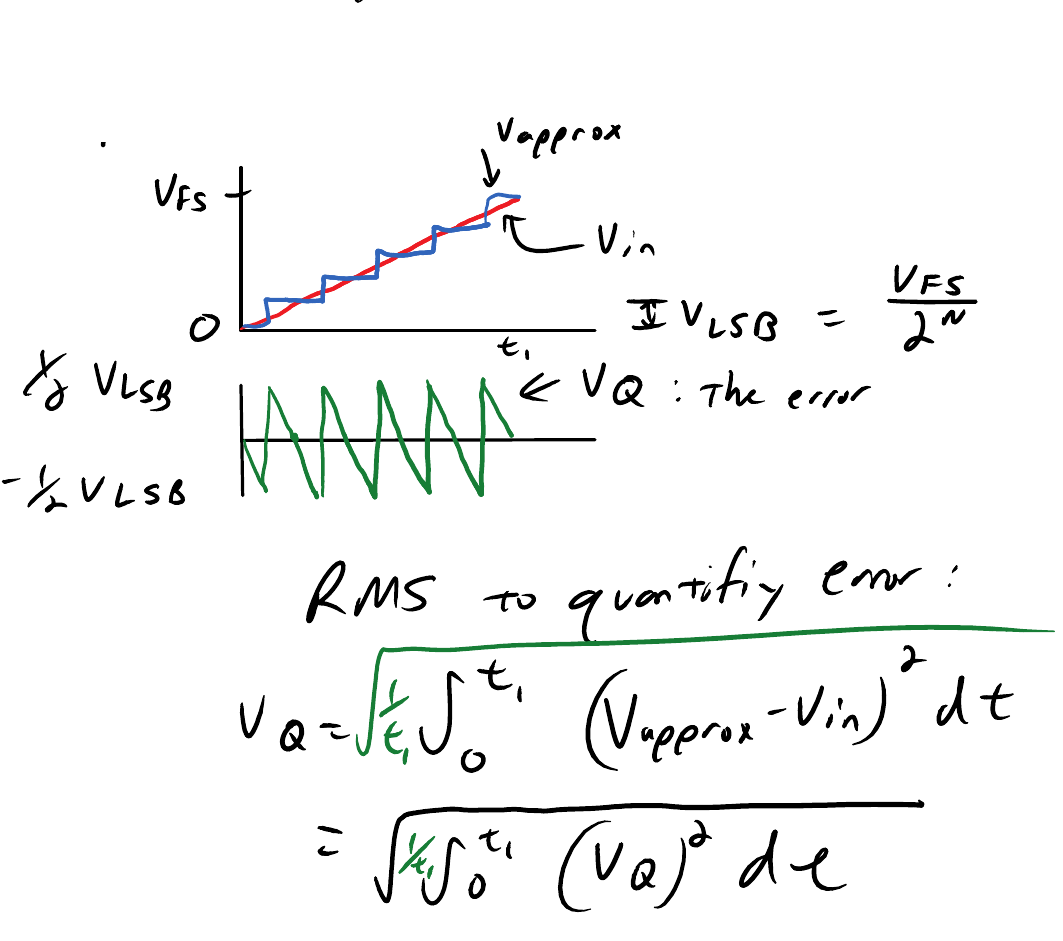 Vapprox
VFS
Vin
0
t₁
I VLSB = VFS / 2^N
1/2 VLSB
← VQ : The error
-1/2 VLSB
RMS to quantifiy error :
VQ = √ 1/t₁ ∫₀^t₁ (Vapprox - Vin)² dt
= √ 1/t₁ ∫₀^t₁ (VQ)² dt